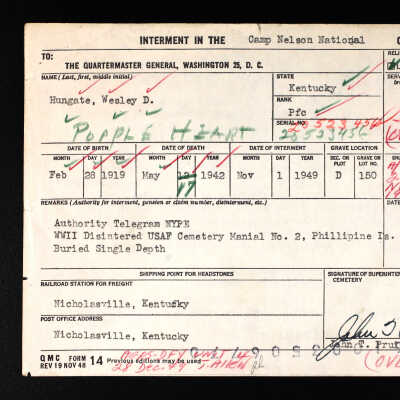 INTERMENT IN THE Camp Nelson National
TO:
THE QUARTERMASTER GENERAL, WASHINGTON 25, D. C.
NAME (Last, first, middle initial)
Hungate, Wesley D.
PURPLE HEART
STATE
Kentucky
RANK
Pfc
SERIAL NO.
DATE OF BIRTH DATE OF DEATH DATE OF INTERMENT GRAVE LOCATION
MONTH DAY YEAR MONTH DAY YEAR MONTH DAY YEAR DEC. OR PLOT GRAVE NO.
Feb 28 1919 May 1942 Nov 1 1949 D 150
17
REMARKS (Authority for interment, pension or claim number, disinterment, etc.)
Authority Telegram NYPE
WWII Disintered USAF Cemetery Manial No. 2, Phillipine Is.
Buried Single Depth
SHIPPING POINT FOR HEADSTONES
RAILROAD STATION FOR FREIGHT
Nicholasville, Kentucky
POST OFFICE ADDRESS
Nicholasville, Kentucky
SIGNATURE OF SUPERINTEN
CEMETERY
John T.
John T. Pru
(OVE
QMC FORM 14 Previous editions may be used
REV 19 NOV 48
28 Dec. 49